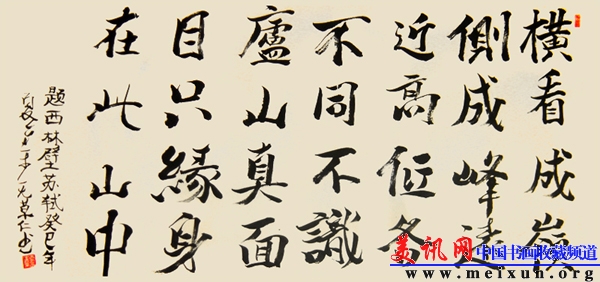 橫看成嶺
側成峰遠
近高低各
不同不識
廬山真面
目只緣身
在此山中
題西林壁苏轼癸巳年
美讯网 中国书画收藏频道
www.meixun.org